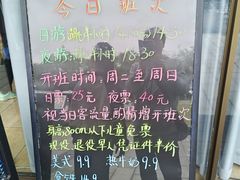 今日班次
日游
夜游 18:30
开班时间:周二至周日
日票:25元 夜票:40元
视当日客流量明情增开班次
身高80cm以下儿童免票
现役退役军人凭证件半价
美式 9.9 热牛奶 9.9